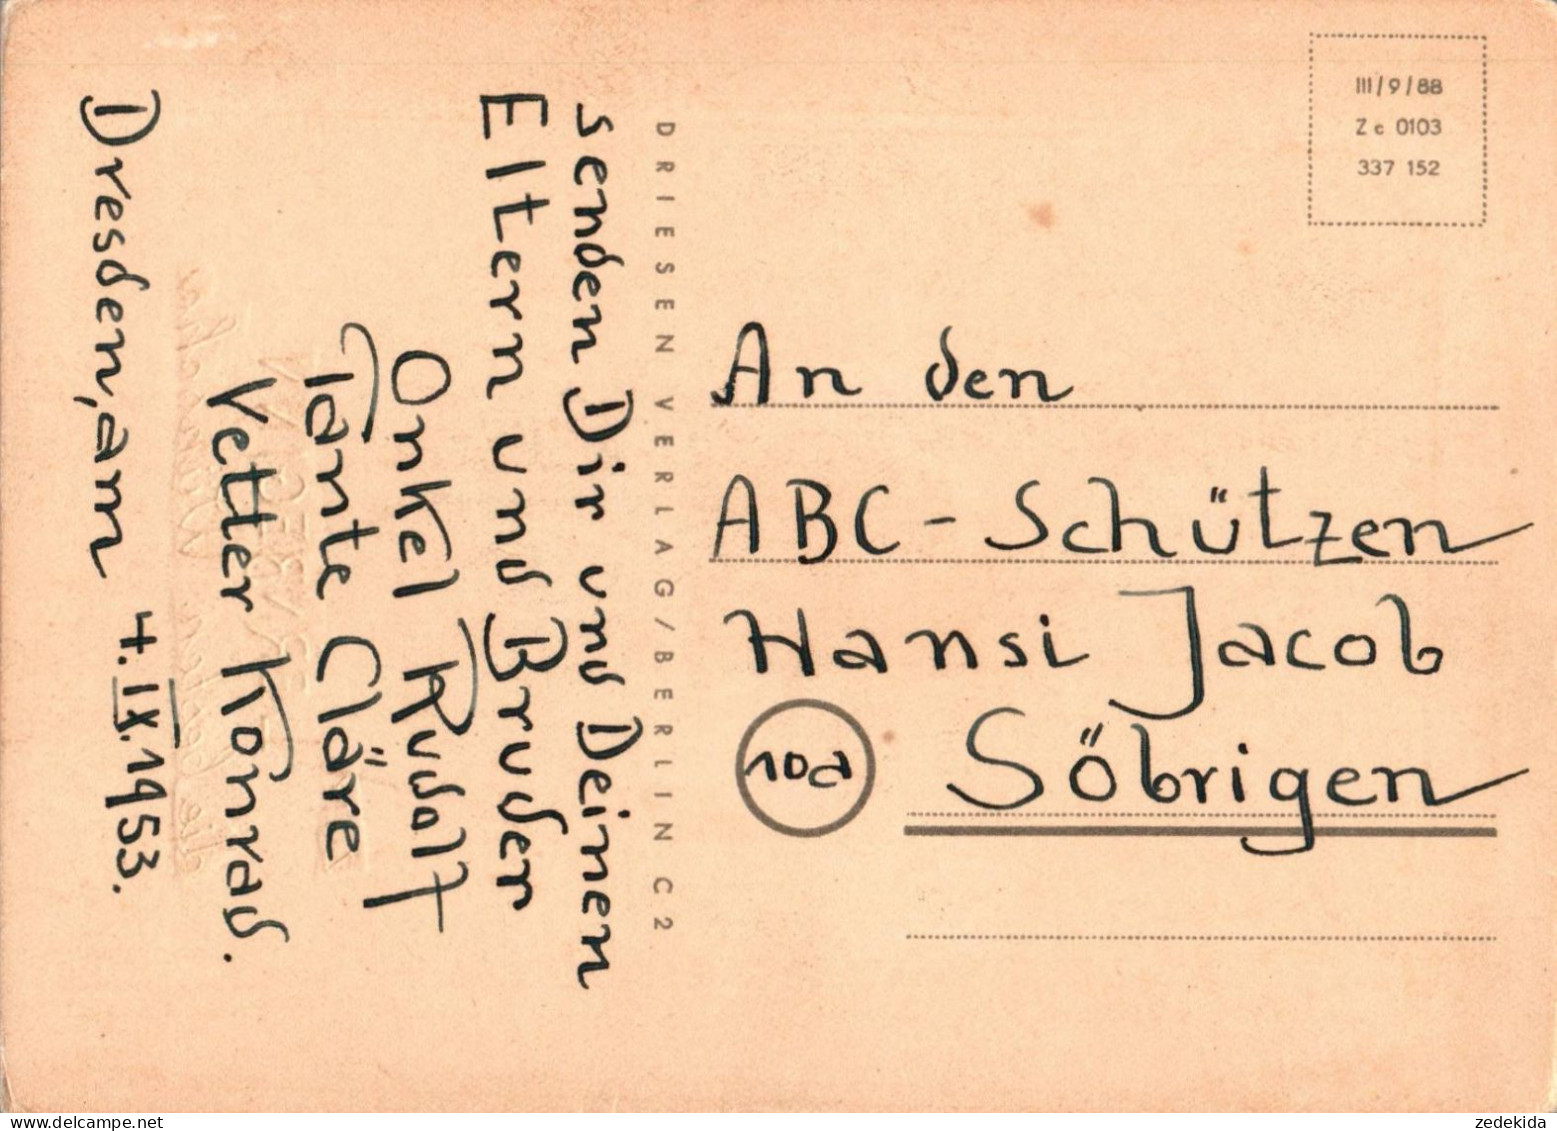 senden Dir und Deinen
Eltern und Bruder
Onkel Rudolf
Tante Cläre
Vetter Konrad.
Dresden, am 4.IX.1953.
DRIESEN VERLAG/BERLIN C2
III/9/88
Zc 0103
337 152
An den
ABC-Schützen
Hansi Jacob
10a
Söbrigen
zedekida